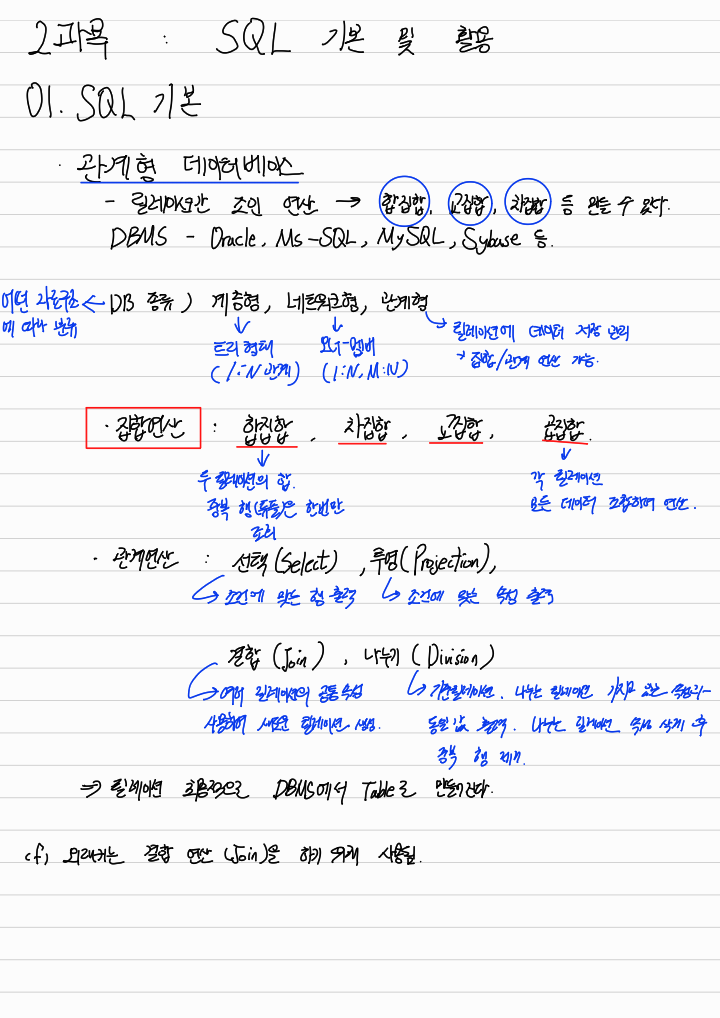 2과목 : SQL 기본 및 활용
01. SQL 기본
· 관계형 데이터베이스
- 릴레이션간 조인 연산 → 합집합, 교집합, 차집합 등 만들 수 있다.
DBMS - Oracle, Ms-SQL, MySQL, Sybase 등.
어떤 자료구조 ← DB 종류) 계층형, 네트워크형, 관계형
에 따라 분류
트리형태
(1:N 관계)
오너-멤버
(1:N, M:N)
릴레이션에 데이터 저장 관리
→ 집합/관계 연산 가능.
· 집합연산 : 합집합, 차집합, 교집합, 곱집합.
두 릴레이션의 합.
중복 행(튜플)은 한번만
조회
각 릴레이션
모든 데이터 조합하여 연산.
· 관계연산 : 선택(Select), 투영(Projection),
→ 조건에 맞는 행 출력
→ 조건에 맞는 속성 출력
결합 (Join), 나누기 (Division)
→ 여러 릴레이션의 공통속성
사용하여 새로운 릴레이션 생성.
→ 기준릴레이션. 나누는 릴레이션 가지고 있는 속성과
동일 값 출력. 나누는 릴레이션 속성 삭제 후
중복 행 제거.
⇒ 릴레이션 최종적으로 DBMS에서 Table로 만들어진다.
cf) 외래키는 결합 연산 (Join)을 하기 위해 사용됨.